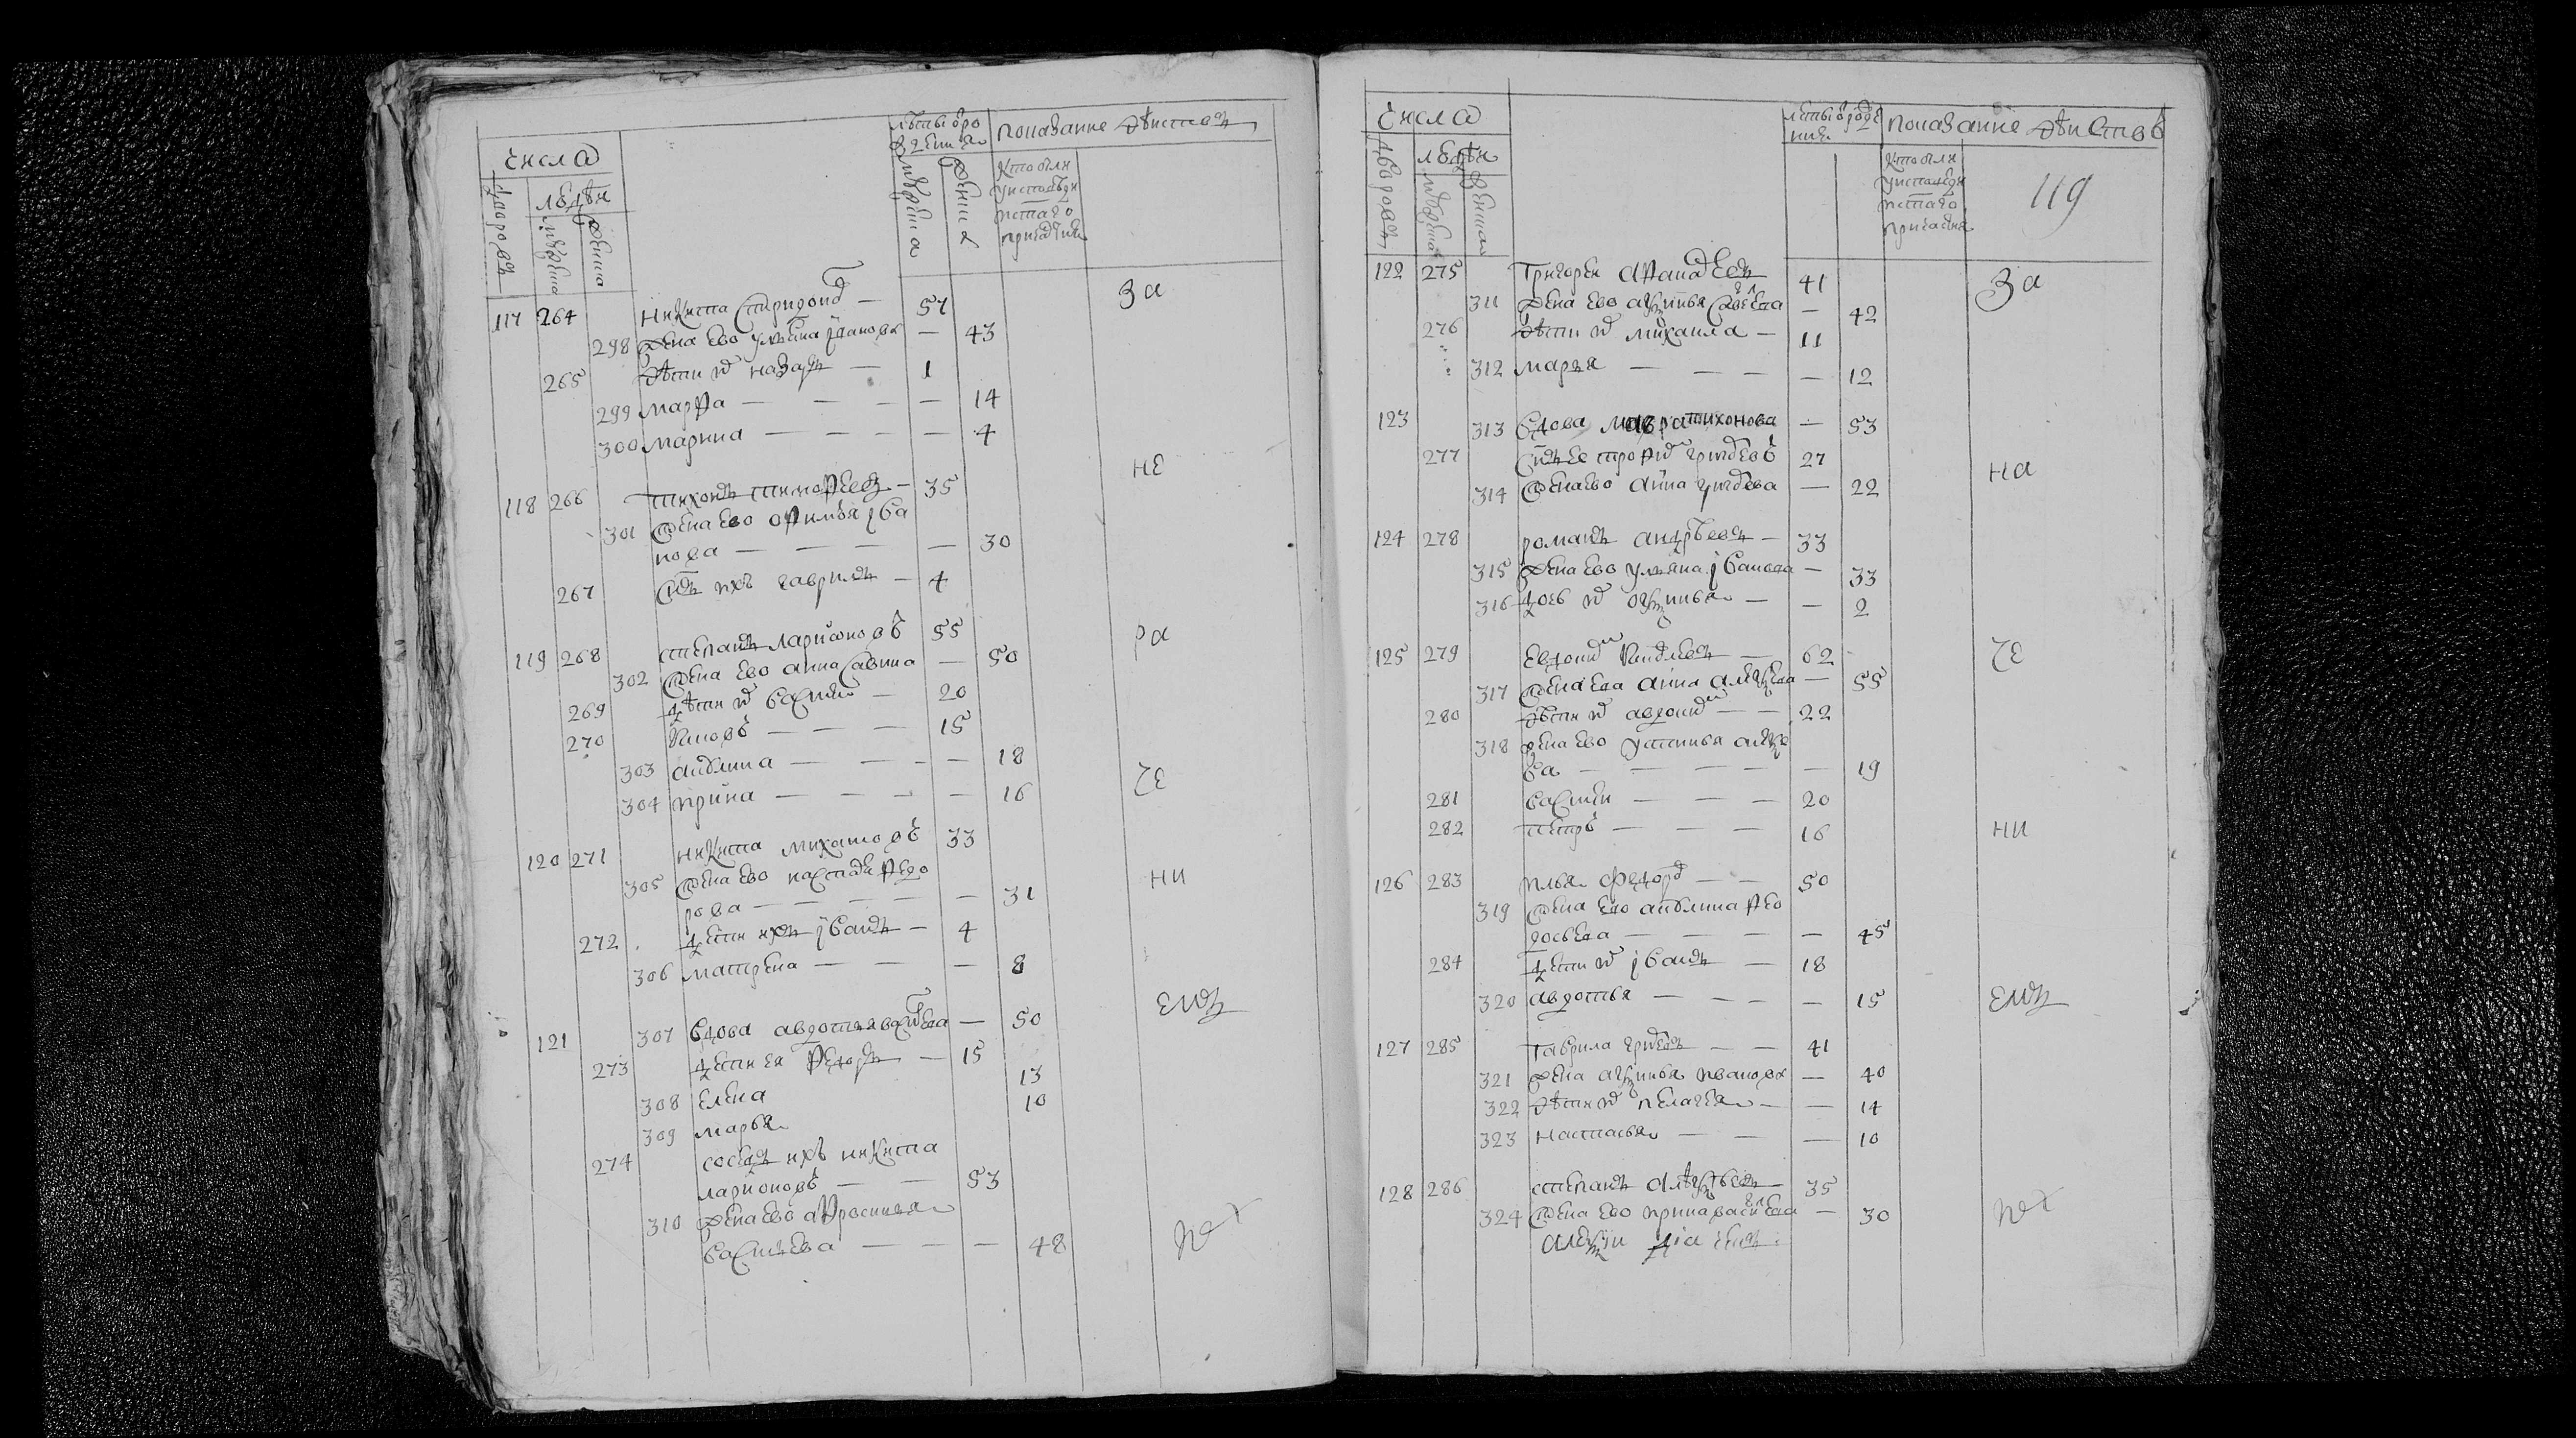 числа
людѣи
лѣты о ро
ждении
показание дѣиствъ
кто были
у исповѣди
117 264 никита спиридонов — 57
298 жена ево ульяна иванова — 43
265 дѣти их назаръ — 1
299 марфа — — — — 14
300 марина — — — — 4
118 266 тихонъ тимофеевъ — 35
301 жена ево офимья ива
нова — — — — 30
267 сын ихъ гаврилъ — 4
119 268 степанъ ларионовъ 55
302 жена ево анна савина — 50
269 дѣти их василеи — 20
270 — — — 15
303 акулина — — — — 18
304 ирина — — — — 16
120 271 никита михаиловъ 33
305 жена ево настася федо
рова — — — — 31
272 дети ихъ иванъ — 4
306 матрена — — — 8
121 307 вдова авдотья васильева — 50
273 дети ея федоръ — 15
308 елена 13
309 марья 10
274 соседъ ихъ никита
ларионовъ — — 53
310 жена ево афросинья
васильева — — — 48
за
не
ра
че
ни
емъ
числа
людѣи
лѣты о рожде
нии
показание дѣиствъ
кто были
у исповѣди
119
122 275 григореи афанасевъ 41
311 жена ево аксинья савелева — 42
276 дѣти их михаила — 11
312 марья — — — — 12
123 313 вдова мавра тихонова — 53
277 сынъ ее трофим григоревъ 27
314 жена ево анна григорева — 22
124 278 романъ андрѣевъ — 33
315 жена ево ульяна иванова — 33
316 дочь их аксинья — — 2
125 279 евдоким — 62
317 жена ева анна алексеева — 55
280 дѣти их авдоким — — 22
318 жена ево устинья алексе
ва — — — — — 19
281 василеи — — — 20
282 петръ — — — 16
126 283 илья федоров — — 50
319 жена ево акулина фео
досьева — — — — 45
284 дети их иванъ — 18
320 авдотья — — — — 15
127 285 гаврила григоревъ — — 41
321 жена аксинья иванова — 40
322 дѣти их пелагея — — 14
323 настасья — — — 10
128 286 степанъ алексѣевъ — 35
324 жена ево ирина васильева — 30
алексии диаконъ
за
на
че
ни
емъ